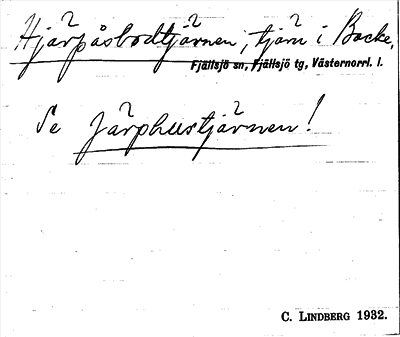 Hjärpåsbodtjärnen, tjärn i Backe,
Fjällsjö sn, Fjällsjö tg, Västernorrl. l.
Se Järphustjärnen!
C. LINDBERG 1932.